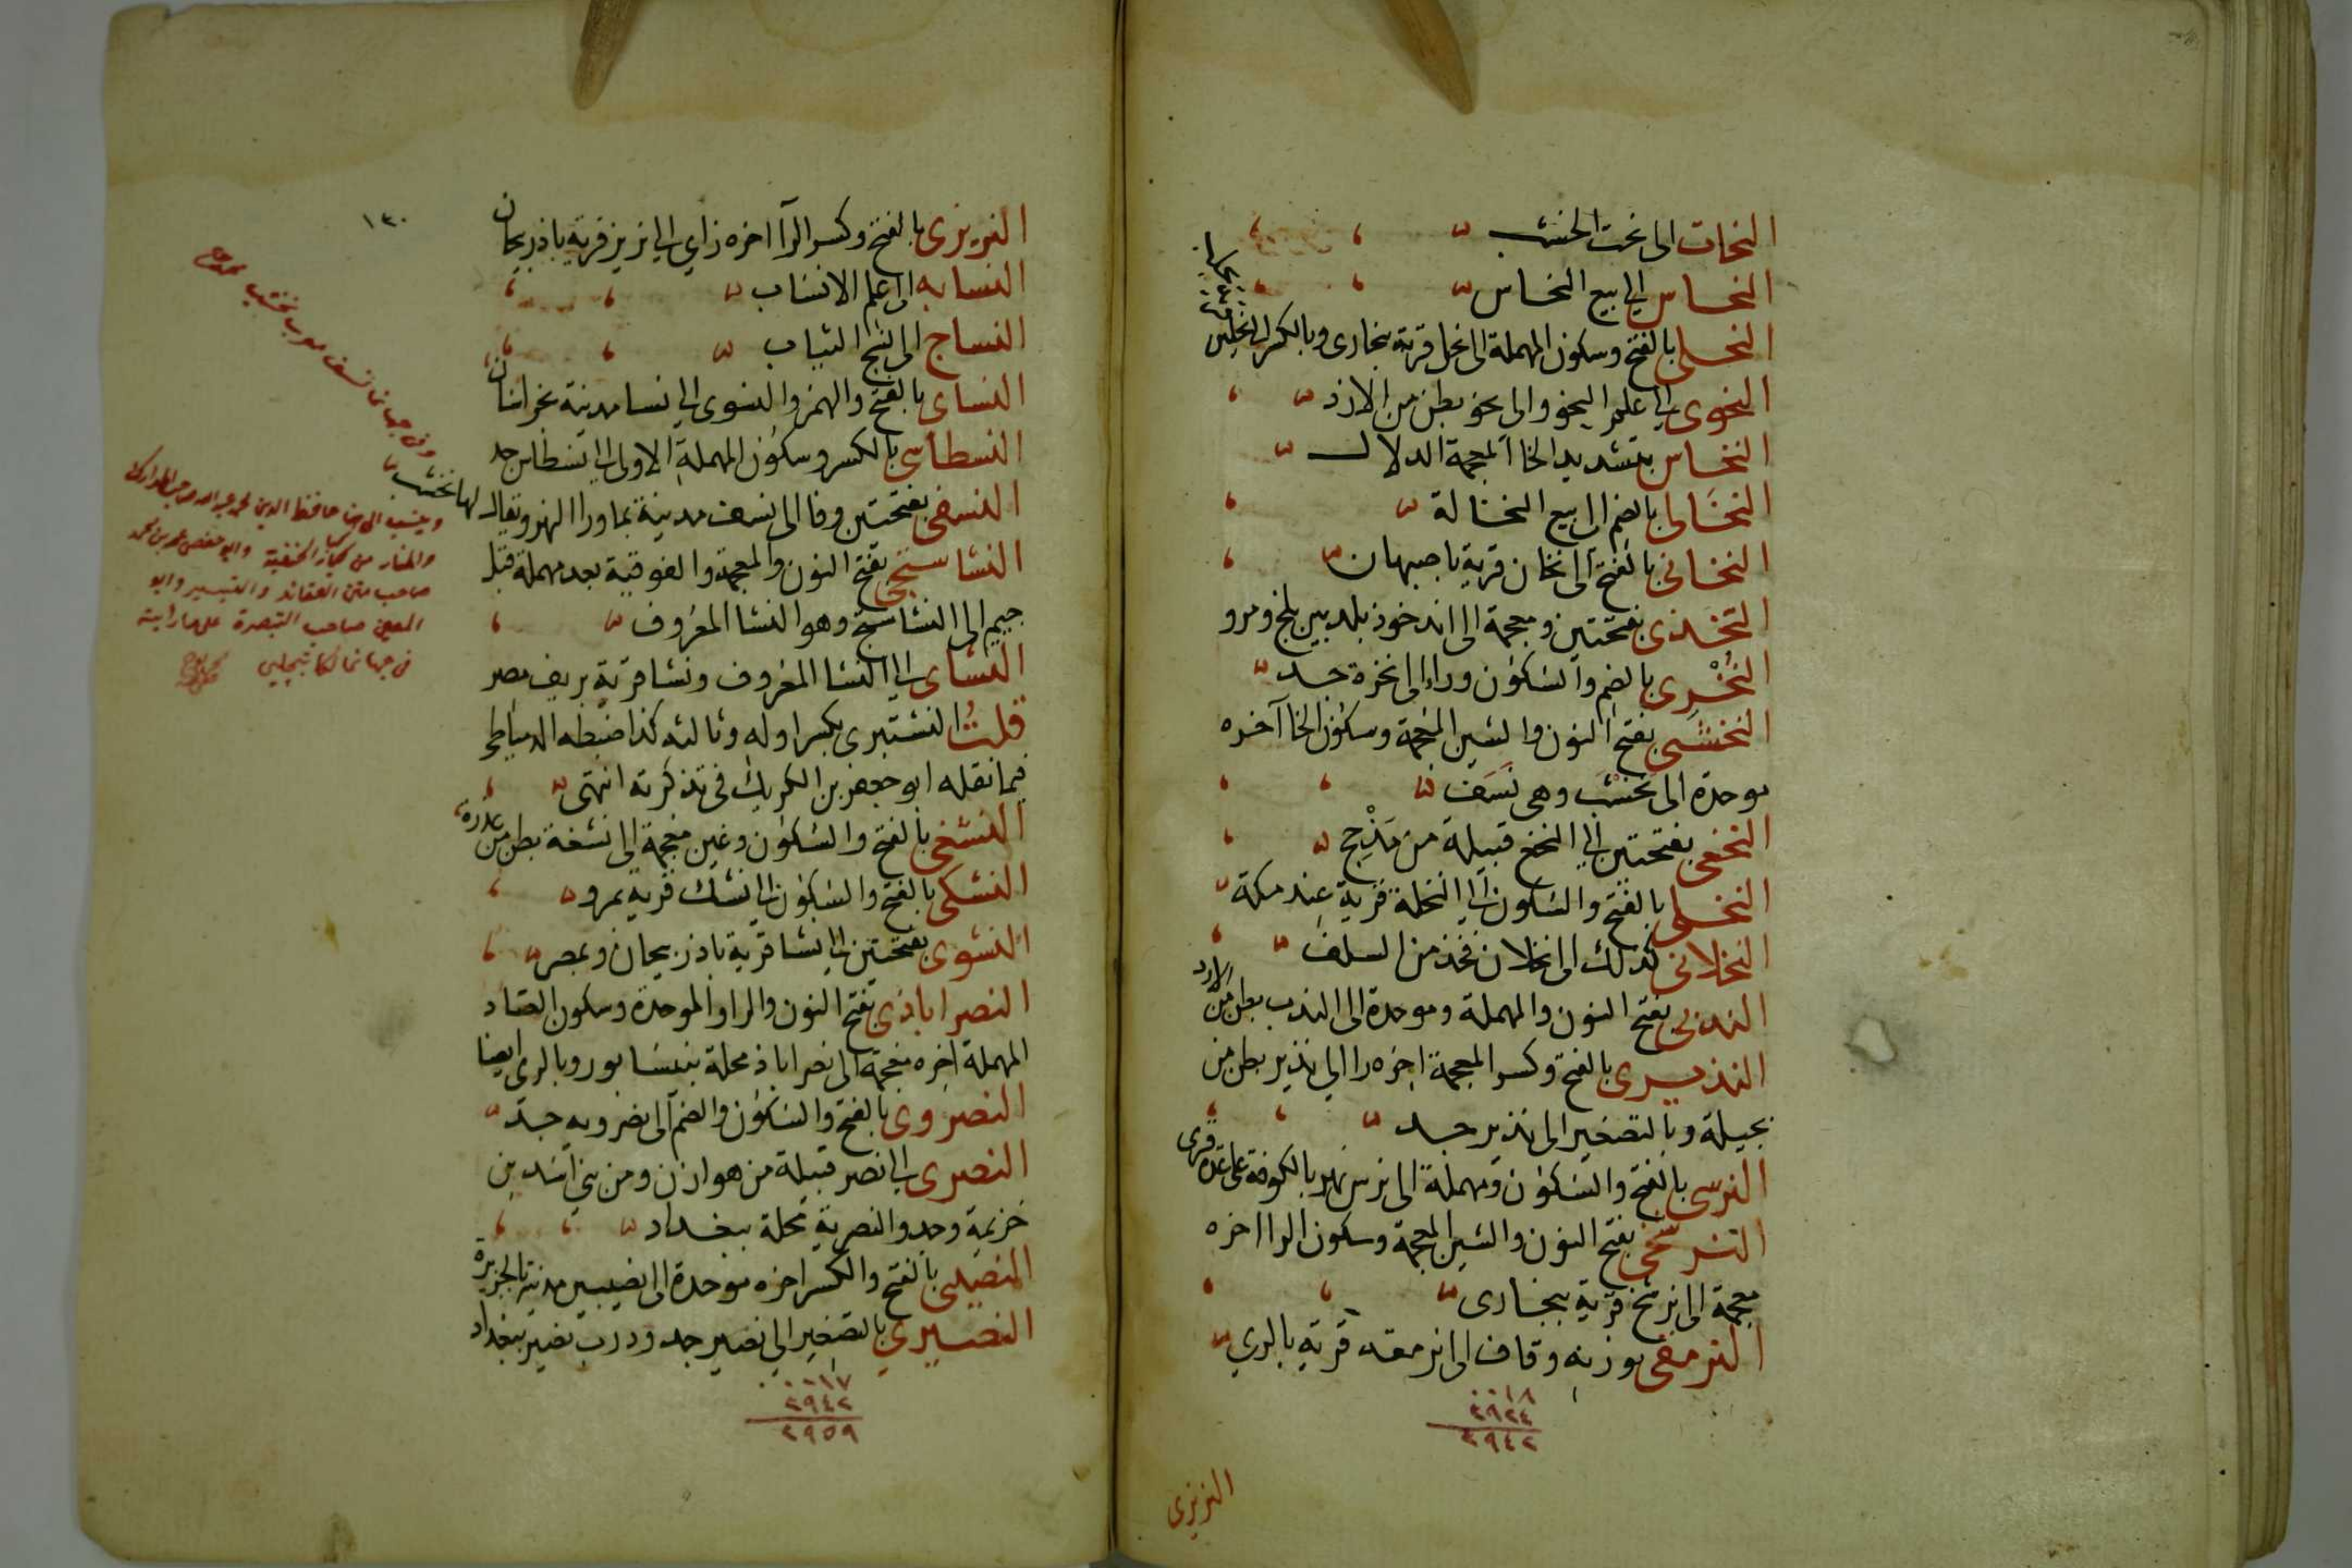 النحات الى نحت الخشب
النحاس الى بيع النحاس
النحلى بالفتح وسكون المهملة الى نحل قرية ببخارى وبالكسر الى نحلين
النحوى الى علم النحو والى نحو بطن من الازد
النخاس بتشديد الخا المعجمة الدلال
النخالى بالضم الى بيع النخالة
النخانى بالفتح الى نخان قرية باصبهان
النخذى بفتحتين ومعجمة الى اندخوذ بلد بين بلخ ومرو
النُخْرى بالضم والسكون وراء الى نخرة جد
النخشبى بفتح النون والشين المعجمة وسكون الخا آخره
موحدة الى نخشب وهى نَسَف
النخعى بفتحتين الى النخع قبيلة من مَذْحِج
النخلى بالفتح والسكون الى النخلة قرية عند مكة
النخلانى كذلك الى نخلان فخذ من السلف
الندبى بفتح النون والمهملة وموحدة الى الندب بطن من الازد
النذيرى بالفتح وكسر المعجمة اخره را الى نذير بطن من
بجيلة وبالتصغير الى نذير جد
النرسى بالفتح والسكون ومهملة الى نرس نهر بالكوفة عليه عدة قرى
النرشخى بفتح النون والشين المعجمة وسكون الرا اخره
معجمة الى نرشخ قرية ببخارى
النرمقى بوزنه وقاف الى نرمقه قرية بالرى
٠٠١٨
٢٩٢٤
٢٩٤٢
النريزى
١٣٠
النريزى بالفتح وكسر الرآ اخره زاى الى نريز قرية باذربيجان
النسابه الى علم الانساب
النساج الى نسج الثياب
النساى بالفتح والهمز والنسوى الى نسا مدينة بخراسان
النسطاسى بالكسر وسكون المهملة الاولى الى نسطاس جد
النسفى بفتحتين وفا الى نسف مدينة بماورا النهر ويقال لها نخشب
النشاستجى بفتح النون والمعجمة والفوقية بعد مهملة قبل
جيم الى النشاستج وهو النشا المعروف
النشاى الى النشا المعروف ونشا قرية بريف مصر
قلتُ النشتبرى بكسر اوله وثالثه كذا ضبطه الدمياطى
فيما نقله ابو جعفر بن الكويك فى تذكرته انتهى
النشغى بالفتح والسكون وغين معجمة الى نشغة بطن من عذرة
النشكى بالفتح والسكون الى نشك قرية بمرو
النشوى بفتحتين الى نشا قرية باذربيجان وبمصر
النصراباذى بفتح النون والرا والموحدة وسكون الصاد
المهملة اخره معجمة الى نصراباذ محلة بنيسابور وبالرى ايضا
النصروى بالفتح والسكون والضم الى نصرويه جد
النصرى الى نصر قبيلة من هوازن ومن بنى اسد بن
خزيمة وجد والنصرية محلة ببغداد
النصيبى بالفتح والكسر اخره موحدة الى نصيبين مدينة بالجزيرة
النصيرى بالتصغير الى نصير جد ودرب نصير ببغداد
٠٠١٧
٢٩٤٢
٢٩٥٩
وفى جهان نما نسف معرب نخشب
وينسب اليها ايضا حافظ الدين
والمنار من كبار الحنفية وابو حفص عمر بن محمد
صاحب متن العقائد والتيسير وابو
المعين صاحب التبصرة على ما رايته
فى جهان نما لكاتب چلبى